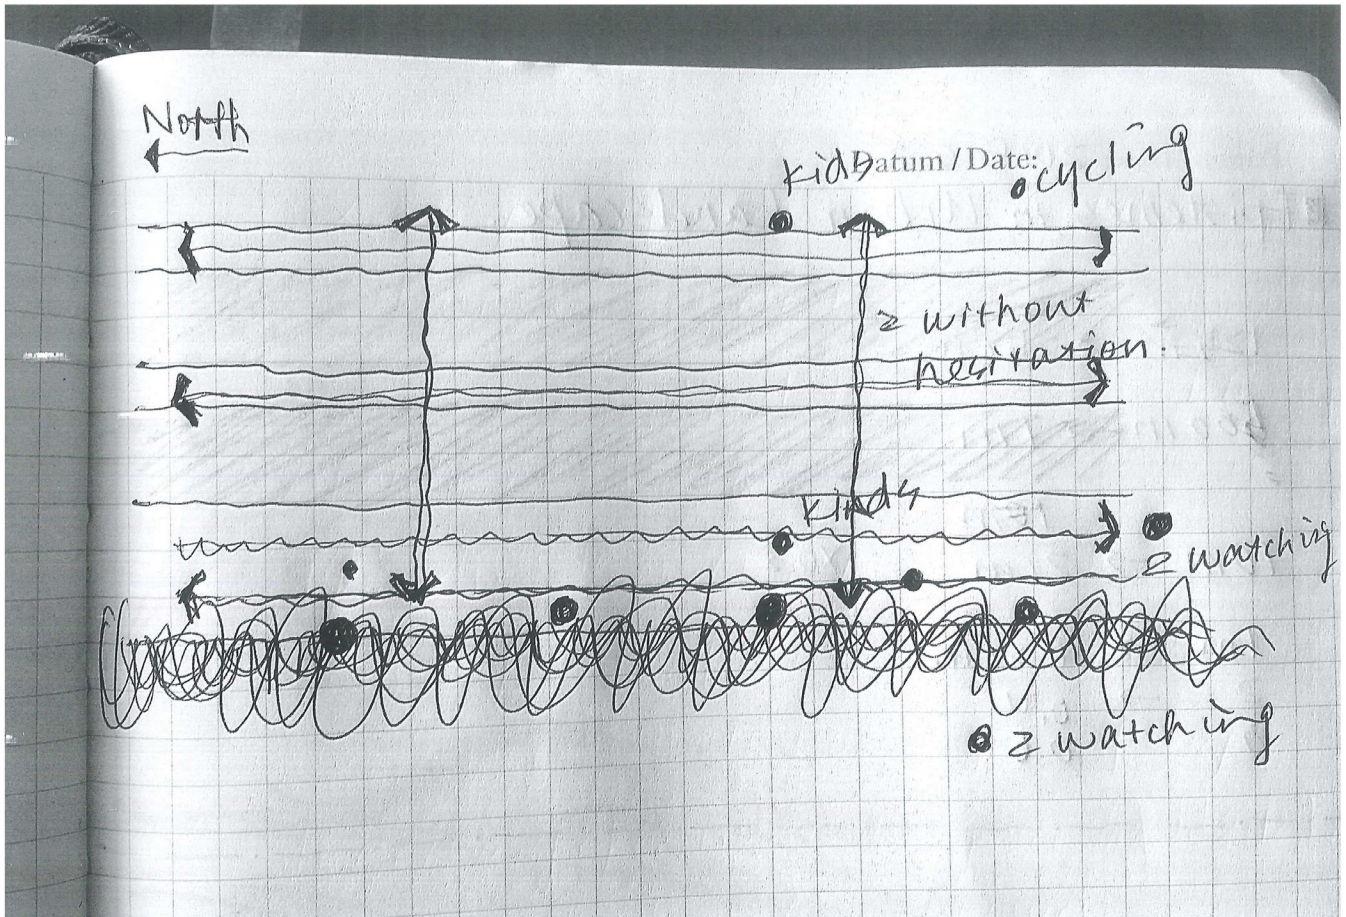 North
Datum / Date:
kids
cycling
2 without
hesitation.
kinds
2 watching
2 watching